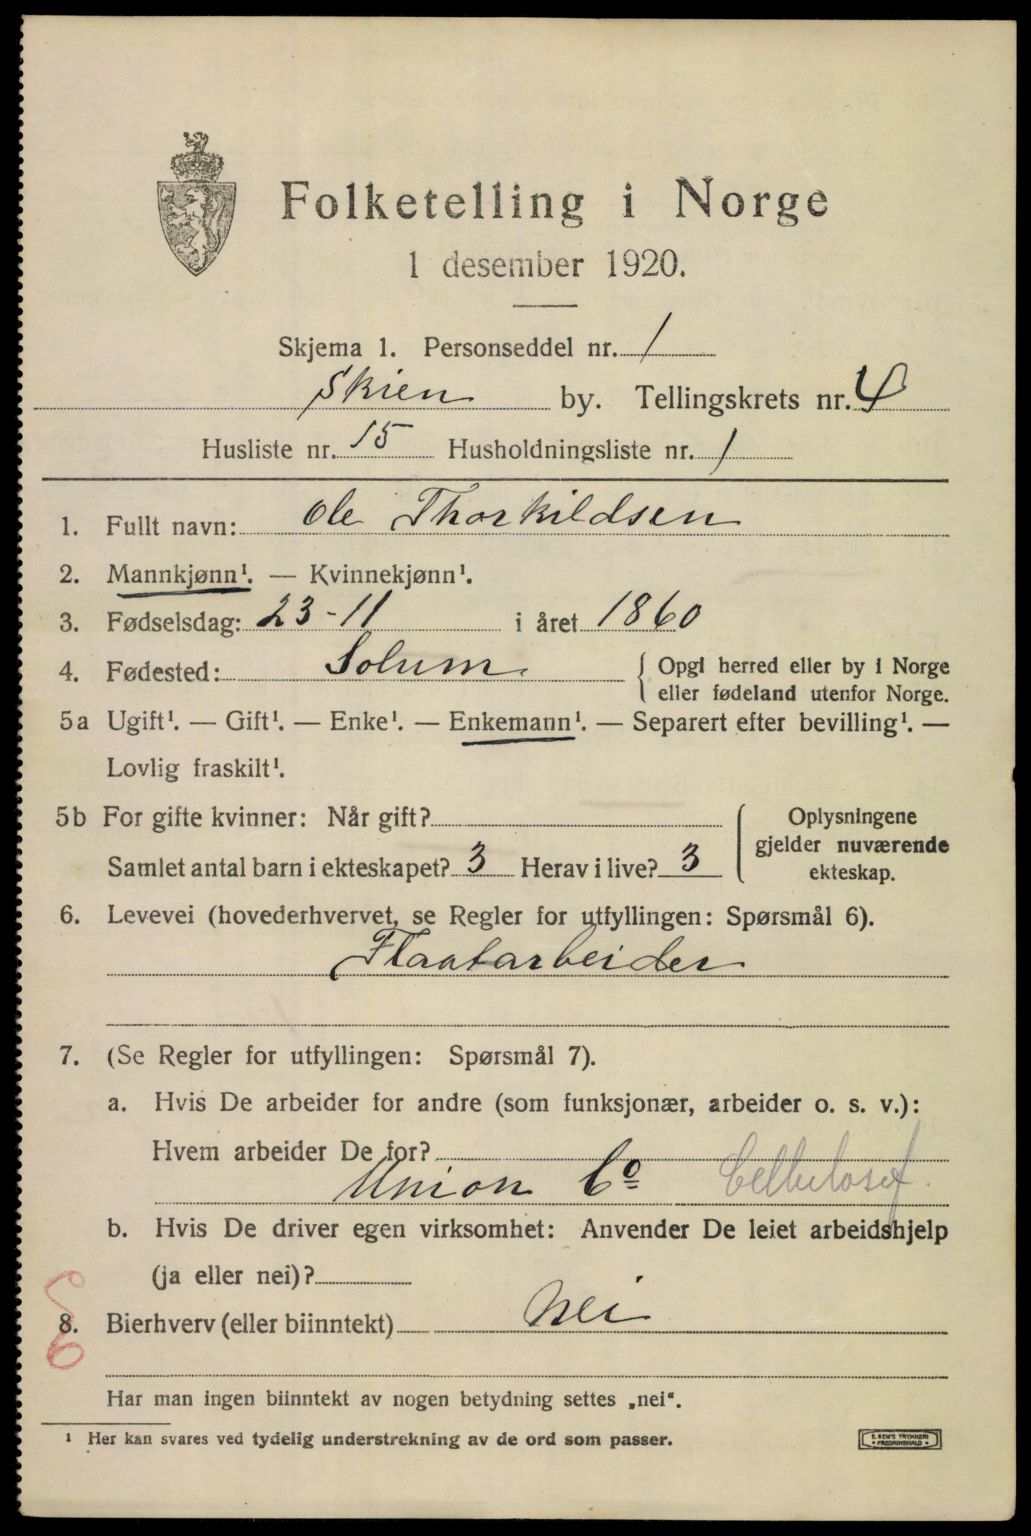 Folketelling i Norge
1 desember 1920.
Skjema 1. Personseddel nr. 1
Skien by. Tellingskrets nr. 4
Husliste nr. 15 Husholdningsliste nr. 1
1. Fullt navn: Ole Thorkildsen
2. Mannkjønn¹. — Kvinnekjønn¹.
3. Fødselsdag: 23-11 i året 1860
4. Fødested: Solum. { Opgi herred eller by i Norge
eller fødeland utenfor Norge.
5a Ugift¹. — Gift¹. — Enke¹. — Enkemann¹. — Separert efter bevilling¹. —
Lovlig fraskilt¹.
5b For gifte kvinner: Når gift?
Samlet antal barn i ekteskapet? 3 Herav i live? 3
Oplysningene
gjelder nuværende
ekteskap.
6. Levevei (hovederhvervet, se Regler for utfyllingen: Spørsmål 6).
Flaatarbeider
7. (Se Regler for utfyllingen: Spørsmål 7).
a. Hvis De arbeider for andre (som funksjonær, arbeider o. s. v.):
Hvem arbeider De for?
Union Co Cellulosef.
b. Hvis De driver egen virksomhet: Anvender De leiet arbeidshjelp
(ja eller nei)?
8. Bierhverv (eller biinntekt) Nei
Har man ingen biinntekt av nogen betydning settes „nei“.
¹ Her kan svares ved tydelig understrekning av de ord som passer.
E. SEM'S TRYKKERI
* FREDRIKSHALD *